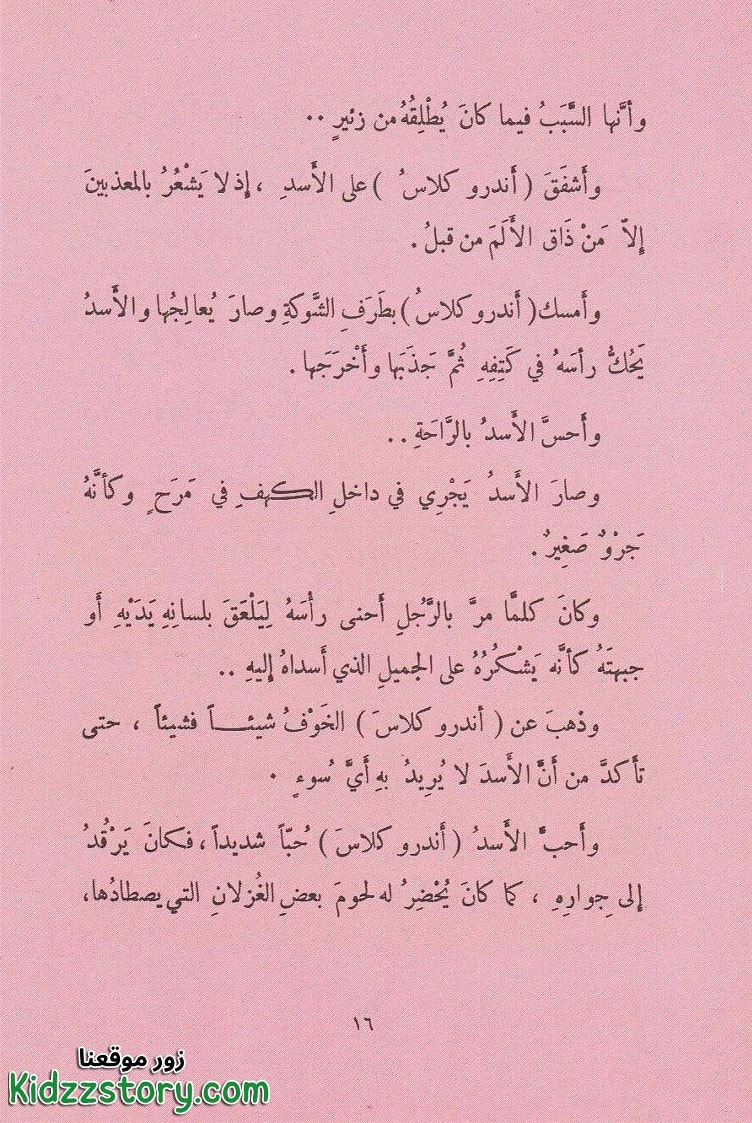 وأنَّها السَّبَبُ فيما كانَ يُطْلِقُهُ من زئيرٍ ..
وأشفَقَ ( أندرو كلاسُ ) على الأَسدِ ، إذ لا يَشْعُرُ بالمعذبينَ
إلاّ مَنْ ذَاق الأَلَمَ من قبلُ .
وأَمسك ( أندرو كلاسُ ) بطَرَفِ الشَّوكةِ وصارَ يُعالجُها والأَسدُ
يَحُكُّ رأسَهُ في كَتِفِهِ ثُمَّ جَذَبَها وأَخْرَجَها .
وأَحسَّ الأَسدُ بالرَّاحَةِ ..
وصارَ الأَسدُ يَجْرِي في داخلِ الكهفِ في مَرَحٍ وكأنَّهُ
جَرْوٌ صَغِيرٌ .
وكانَ كلمَّا مرَّ بالرَّجُلِ أَحنى رأْسَهُ لِيَلْعَقَ بلسانِهِ يَدَيْهِ أَو
جبهتَهُ كأنَّه يَشْكُرُهُ على الجميلِ الذي أَسداهُ إليهِ ..
وذهبَ عن ( أندرو كلاسَ ) الخَوْفُ شيئــاً فشيئاً ، حتى
تأَكدَّ من أنَّ الأَسدَ لا يُرِيدُ بهِ أَيَّ سُوءٍ .
وأَحبَّ الأَسدُ ( أَندرو كلاسَ ) حُبّاً شديداً ، فكانَ يَرْقُدُ
إلى جِوارِهِ ، كما كانَ يُحْضِرُ له لحومَ بعضِ الغُزلانِ التي يصطادُها ،
١٦
زور موقعنا
Kidzzstory.com